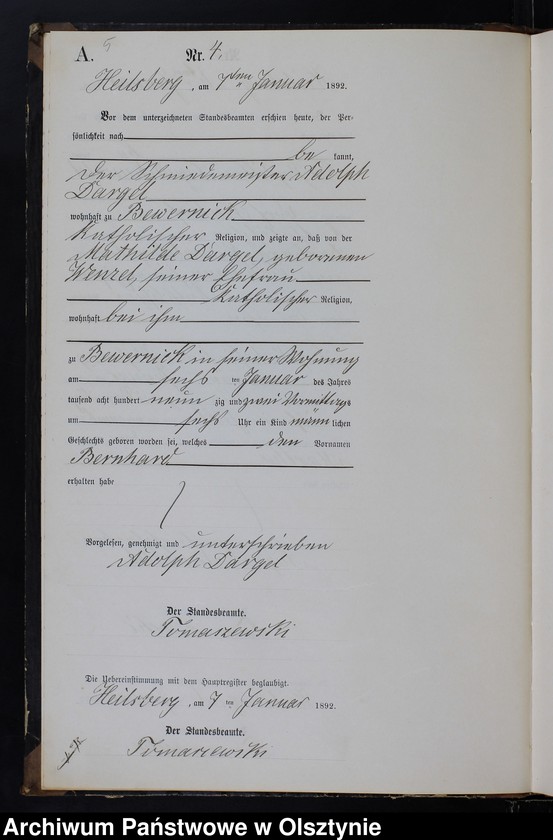 A. 5 Nr. 4.
Heilsberg, am 7ten Januar 1892.
Vor dem unterzeichneten Standesbeamten erschien heute, der Per-
sönlichkeit nach
be kannt,
der Schmiedemeister Adolph
Dargel
wohnhaft zu Bewernick
katholischer Religion, und zeigte an, daß von der
Mathilde Dargel, geborenen
Wenzel, seiner Ehefrau
katholischer Religion,
wohnhaft bei ihm
zu Bewernick in seiner Wohnung
am sechs ten Januar des Jahres
tausend acht hundert neun zig und zwei Vormittags
um sechs Uhr ein Kind männ lichen
Geschlechts geboren worden sei, welches den Vornamen
Bernhard
erhalten habe
Vorgelesen, genehmigt und unterschrieben
Adolph Dargel
Der Standesbeamte.
Tomaszewski
Die Uebereinstimmung mit dem Hauptregister beglaubigt.
Heilsberg, am 7 ten Januar 1892.
Der Standesbeamte.
Tomaszewski
Archiwum Państwowe w Olsztynie